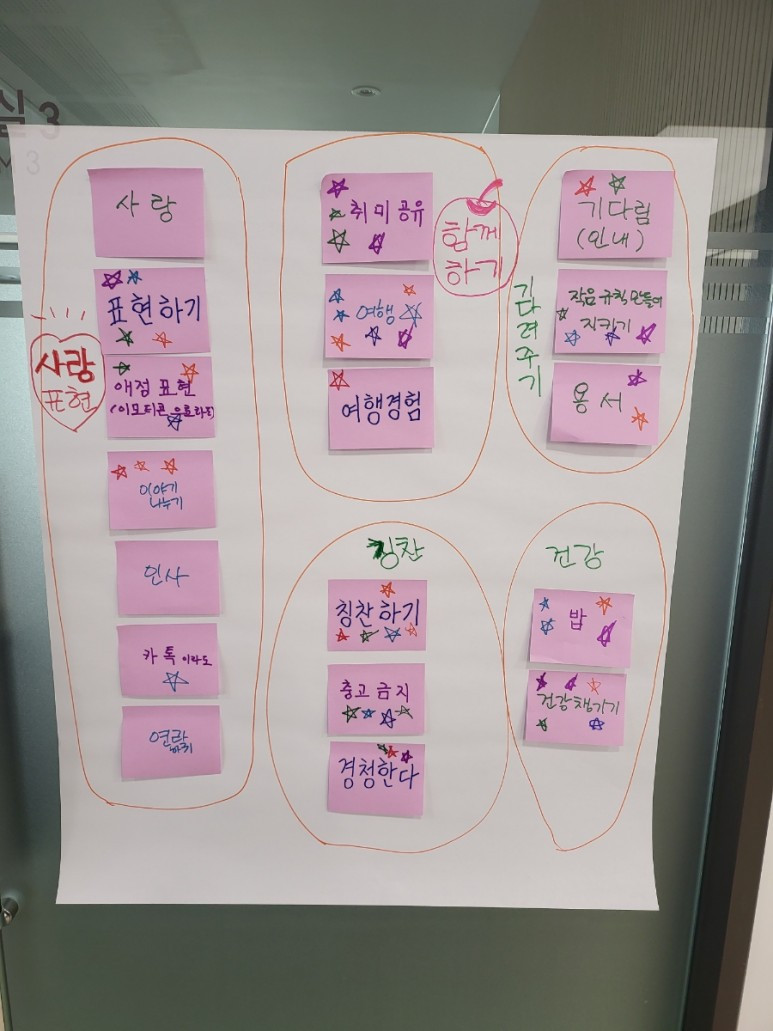 실 3
3
사랑
표현
사랑
표현하기
애정 표현
(이모티콘 으로라도)
이야기
나누기
인사
카톡이라도
연락
하기
함께
하기
취미공유
여행
여행경험
기다려주기
기다림
(인내)
작은 규칙 만들어
지키기
용서
칭찬
칭찬하기
충고 금지
경청한다
건강
밥
건강챙기기